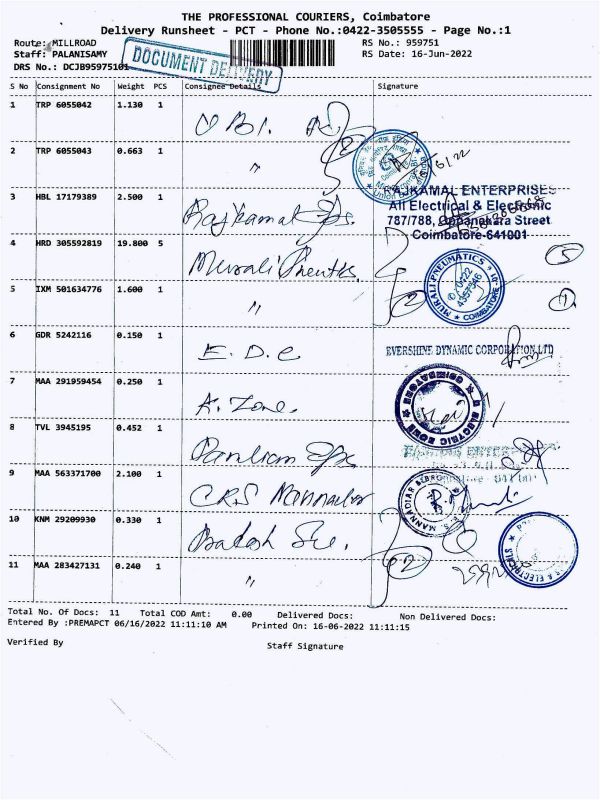 THE PROFESSIONAL COURIERS, Coimbatore
Delivery Runsheet - PCT - Phone No.:0422-3505555 - Page No.:1
Route: MILLROAD RS No.: 959751
Staff: PALANISAMY RS Date: 16-Jun-2022
DRS No.: DCJB95975101
DOCUMENT DELIVERY
S No Consignment No Weight PCS Consignee Details Signature
1 TRP 6055042 1.130 1
2 TRP 6055043 0.663 1 "
3 HBL 17179389 2.500 1 Rajkamal
RAJKAMAL ENTERPRISES
All Electrical & Electronic
787/788, Oppanakara Street
Coimbatore-641001
4 HRD 305592819 19.800 5 Murali
MURALI PNEUMATICS
COIMBATORE
0422
4357546
5 IXM 501634776 1.600 1 "
6 GDR 5242116 0.150 1 E. D. C
EVERSHINE DYNAMIC CORPORATION LTD
7 MAA 291959454 0.250 1 A. Zone
COIMBATORE
ELECTRIC ZONE
8 TVL 3945195 0.452 1
9 MAA 563371700 2.100 1 CRS Mannadiar
10 KNM 29209930 0.330 1
11 MAA 283427131 0.240 1 "
Total No. Of Docs: 11 Total COD Amt: 0.00 Delivered Docs: Non Delivered Docs:
Entered By :PREMAPCT 06/16/2022 11:11:10 AM Printed On: 16-06-2022 11:11:15
Verified By Staff Signature